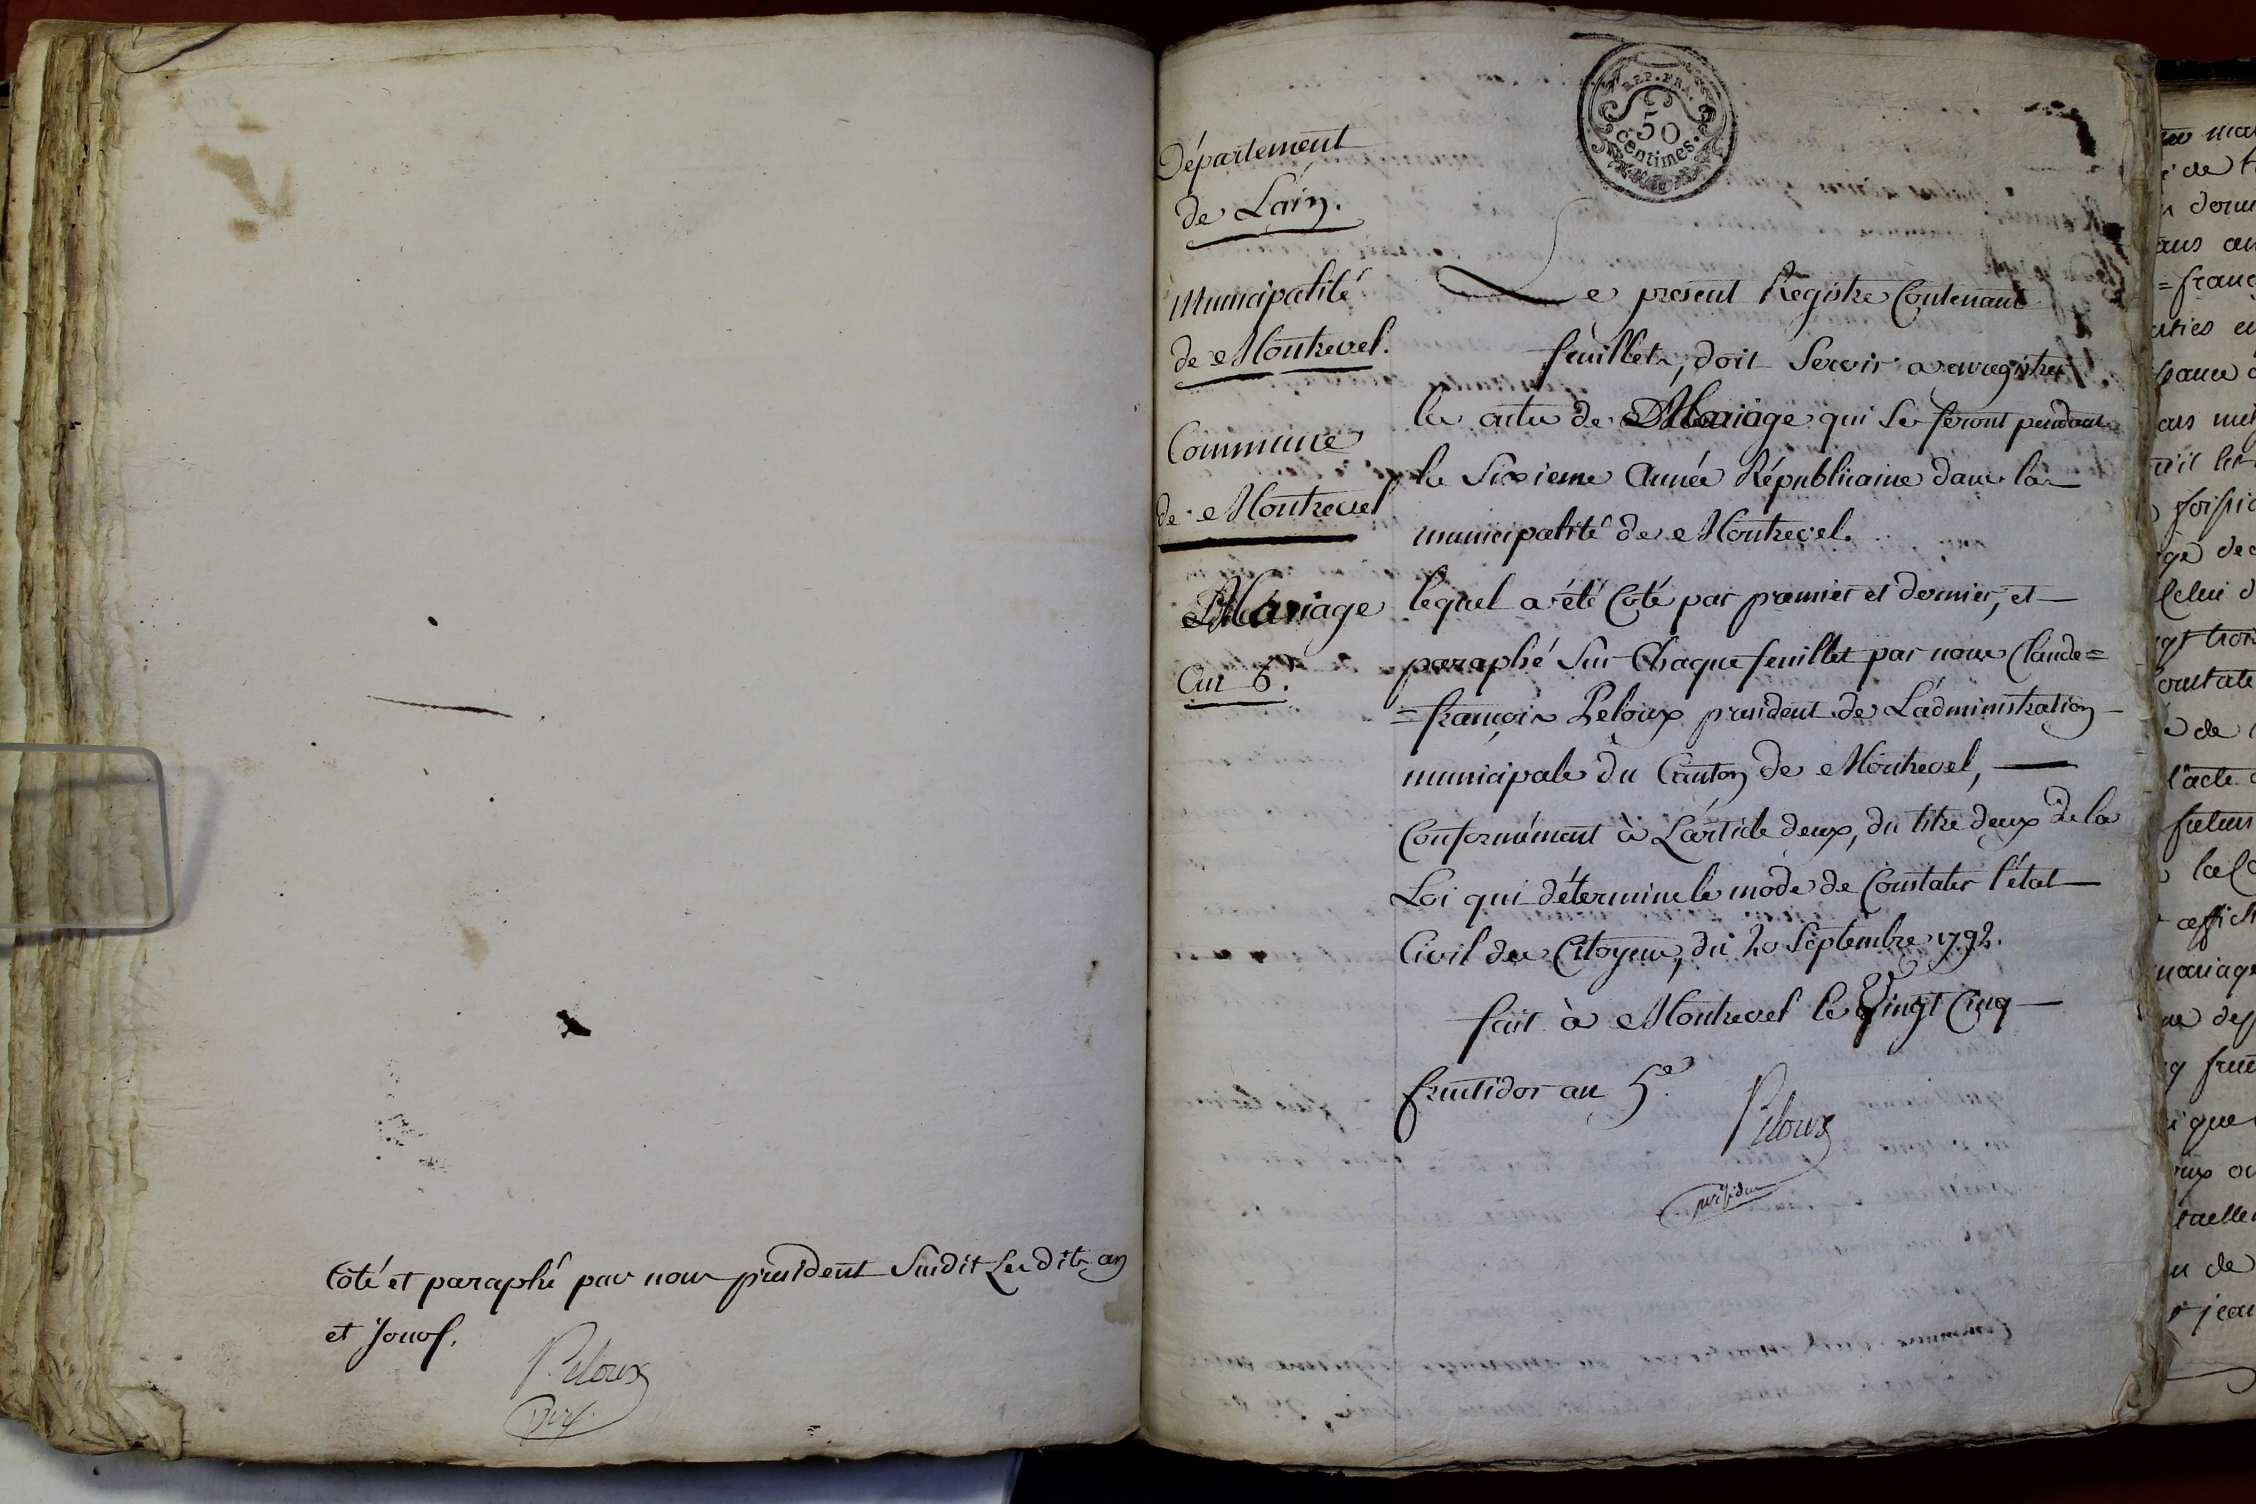 Coté et paraphé par nous president Susdit Les dits an
et Jour.
Peloux
pres.
REP. FRA.
50
Centimes.
Département
de Lain.
Municipalité
de Montrevel.
Commune
de Montrevel
Mariage
An 6.
Le present Registre Contenant
feuillets, doit Servir a enregistrer
les actes de Mariage qui Se feront pendant
la Sixieme Année Républicaine dans la
municipalité de Montrevel.
lequel a été Coté par premier et dernier, et
paraphé Sur Chaque feuillet par nous Claude=
=françois Peloux president de L'administration
municipale du Canton de Montrevel,
Conformément à L'article deux, du titre deux de la
Loi qui détermine le mode de Constater l'état
Civil des Citoyens, du 20 Septembre 1792.
fait à Montrevel le Vingt Cinq
fructidor an 5e.
Peloux
president